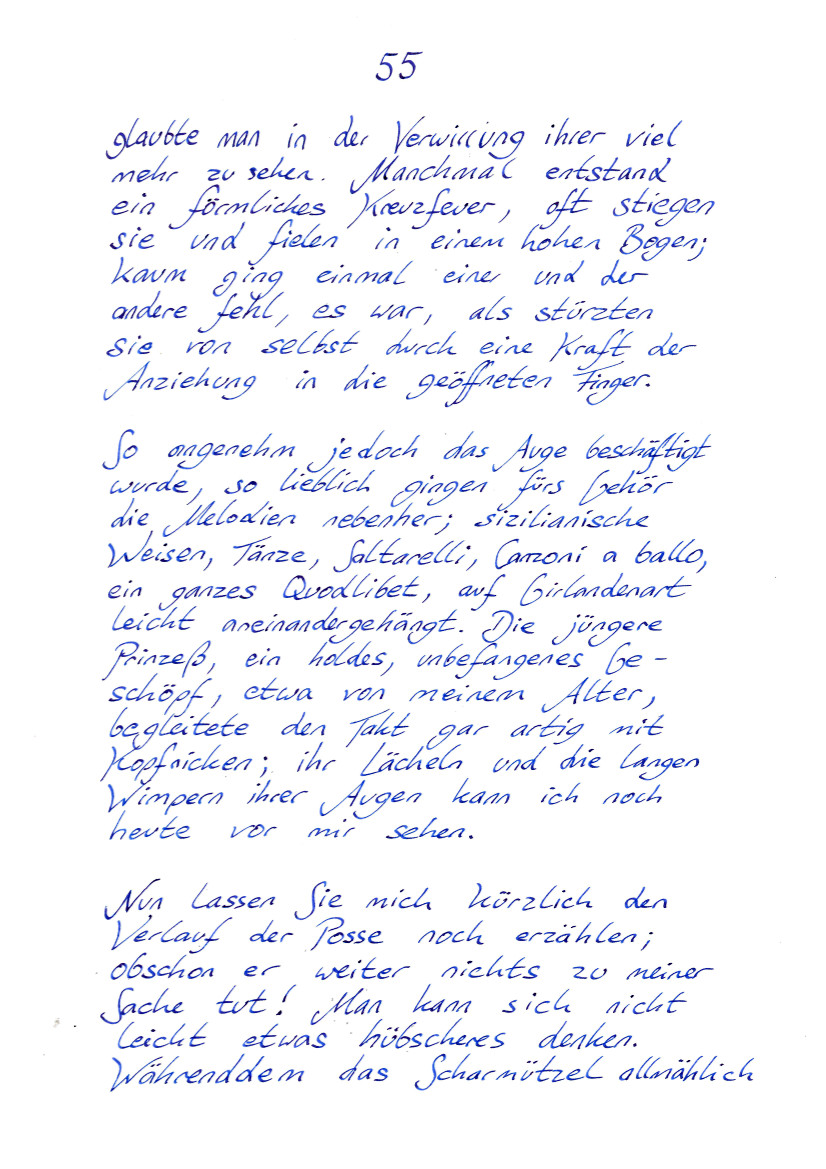 55
glaubte man in der Verwirrung ihrer viel
mehr zu sehen. Manchmal entstand
ein förmliches Kreuzfeuer, oft stiegen
sie und fielen in einem hohen Bogen;
kaum ging einmal einer und der
andere fehl, es war, als stürzten
sie von selbst durch eine Kraft der
Anziehung in die geöffneten Finger.
So angenehm jedoch das Auge beschäftigt
wurde, so lieblich gingen fürs Gehör
die Melodien nebenher; sizilianische
Weisen, Tänze, Saltarelli, Canzoni a ballo,
ein ganzes Quodlibet, auf Girlandenart
leicht aneinandergehängt. Die jüngere
Prinzeß, ein holdes, unbefangenes Ge-
schöpf, etwa von meinem Alter,
begleitete den Takt gar artig mit
Kopfnicken; ihr Lächeln und die langen
Wimpern ihrer Augen kann ich noch
heute vor mir sehen.
Nun lassen Sie mich kürzlich den
Verlauf der Posse noch erzählen;
obschon er weiter nichts zu meiner
Sache tut! Man kann sich nicht
leicht etwas hübscheres denken.
Währenddem das Scharmützel allmählich